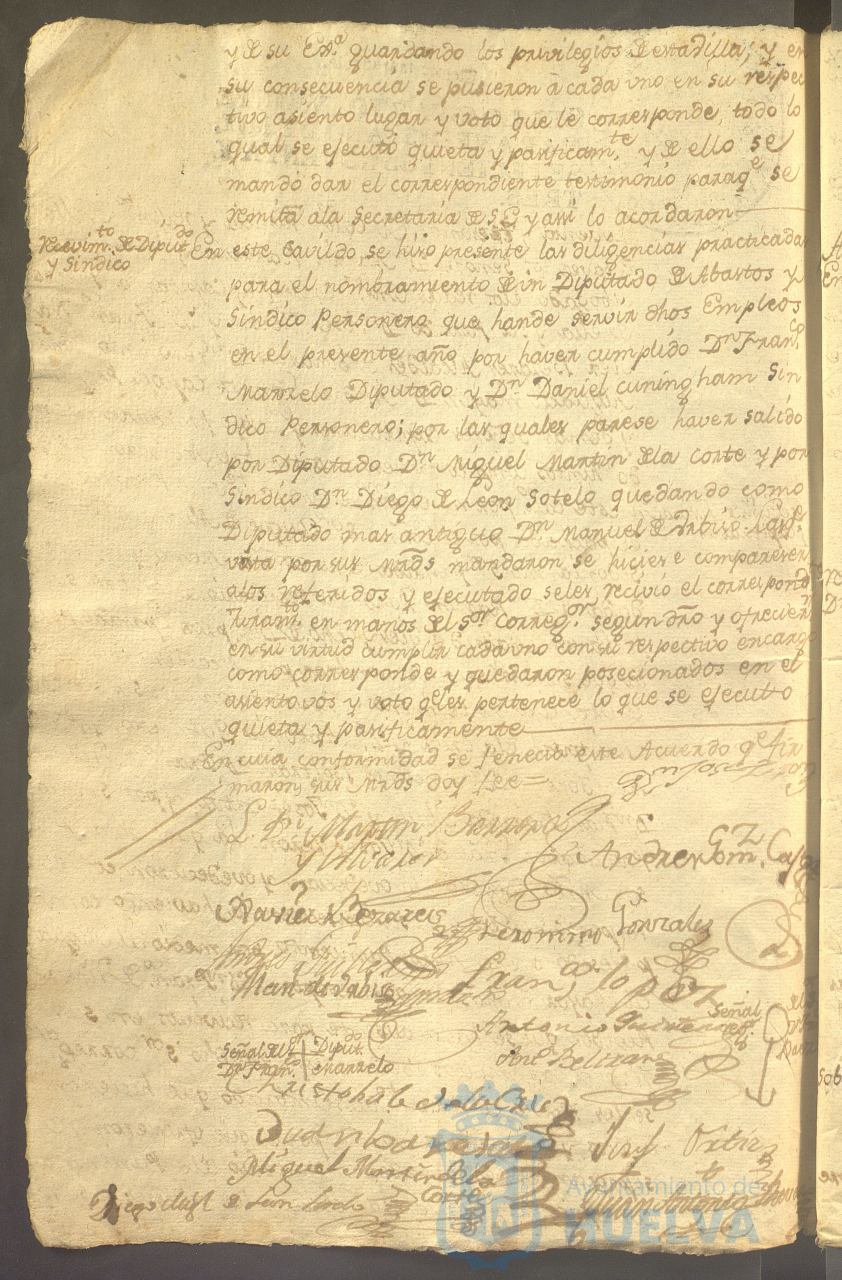 y de su Exª guardando los privilegios de esta Villa; y en
su consecuencia se pusieron a cada uno en su respec
tivo asiento lugar y voto que le corresponde, todo lo
qual se ejecutó quieta y pasificam.te y de ello se
mandó dar el correspondiente testimonio para q.e se
remita ala Secretaría de S E y assi lo acordaron
recivim.to de Diput.do
y Sindico
En este Cavildo se hiso presente las diligencias practicadas
para el nombramiento de un Diputado de Abastos y
Sindico Personero que hande servir dhos Empleos
en el presente año por haver cumplido Dn Fran.co
Marrelo Diputado y Dn Daniel cuningham Sin
dico Personero; por las quales parese haver salido
por Diputado Dn Miguel Martin de la Corte y por
Sindico Dn Diego de Leon Sotelo quedando como
Diputado mas antiguo Dn Manuel de
vista por sus Mrds mandaron se hiciere compareser
alos referidos y ejecutado seles recivió el correspond.te
Juram.to en manos del S.or Correg.or segun dro y ofrecier.n
en su virtud cumplir cada uno con su respectivo encargo
como corresponde y quedaron posecionados en el
asiento vos y voto q.e les pertenece lo que se ejecutó
quieta y pasificamente
En cuia conformidad se fenecio este Acuerdo q.e fir
maron sus Mrds doy fee=
L. Di Martin Barrera
y
Andres Gom.z
Xavier
Geronimo Gonzales
Man. de
Fran.co lopez
Antonio Señal
Señal del Diput.do
Dn Fran.co Marrelo
Ant.o Beltran
Cristobal de la Cruz
Juan
Josef Ortiz
Miguel Martin de la
Corte
Diego de Leon Sotelo
Ayuntamiento de
HUELVA